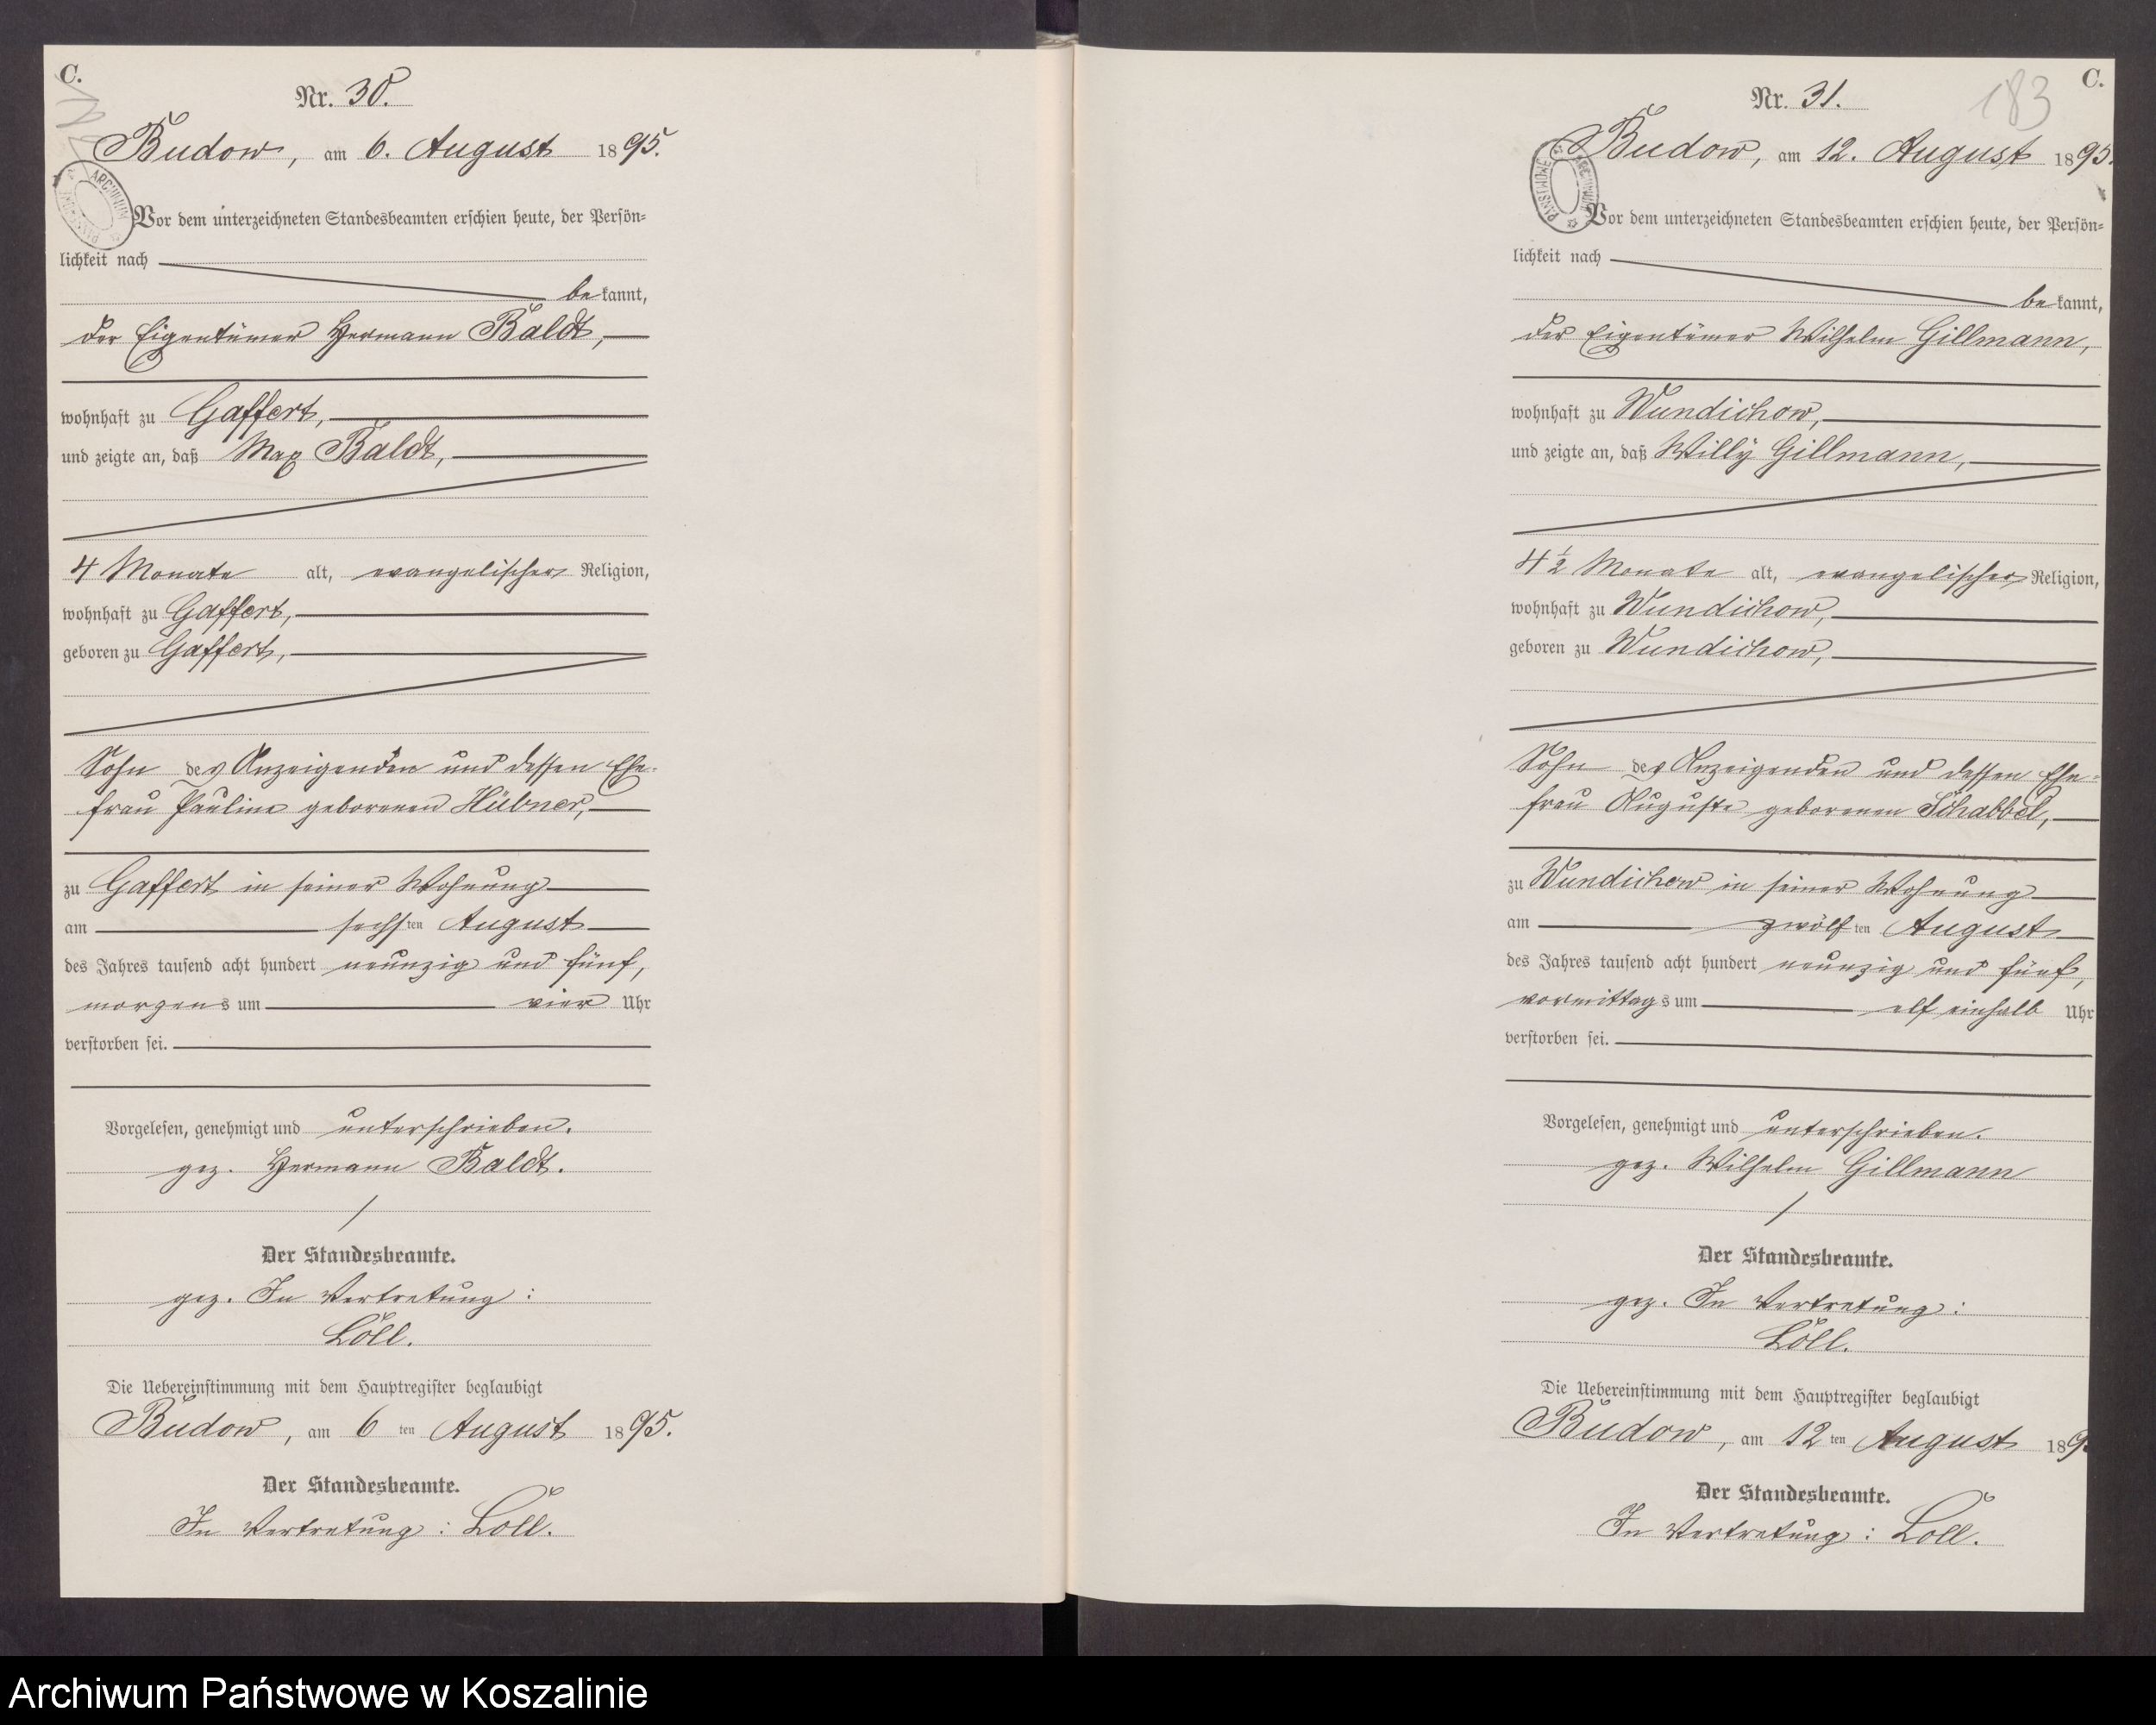 C.
Nr. 30.
Budow, am 6. August 1895.
ARCHIWUM
PAŃSTWOWE
Vor dem unterzeichneten Standesbeamten erschien heute, der Persön=
lichkeit nach
be kannt,
der Eigentümer Hermann Baldt,
wohnhaft zu Gaffert,
und zeigte an, daß Max Baldt,
4 Monate alt, evangelischer Religion,
wohnhaft zu Gaffert,
geboren zu Gaffert,
Sohn des Anzeigenden und dessen Ehe-
frau Pauline geborenen Hübner,
zu Gaffert in seiner Wohnung
am sechsten August
des Jahres tausend acht hundert neunzig und fünf,
morgens um vier Uhr
verstorben sei.
Vorgelesen, genehmigt und unterschrieben.
gez. Hermann Baldt.
Der Standesbeamte.
gez. In Vertretung:
Löll.
Die Uebereinstimmung mit dem Hauptregister beglaubigt
Budow, am 6 ten August 1895.
Der Standesbeamte.
In Vertretung: Löll.
C.
183
Nr. 31.
Budow, am 12. August 1895.
ARCHIWUM
PAŃSTWOWE
Vor dem unterzeichneten Standesbeamten erschien heute, der Persön=
lichkeit nach
be kannt,
der Eigentümer Wilhelm Gillmann,
wohnhaft zu Wundichow,
und zeigte an, daß Willy Gillmann,
4 1/2 Monate alt, evangelischer Religion,
wohnhaft zu Wundichow,
geboren zu Wundichow,
Sohn des Anzeigenden und dessen Ehe=
frau Auguste geborenen Schabbel,
zu Wundichow in seiner Wohnung
am zwölften August
des Jahres tausend acht hundert neunzig und fünf,
vormittags um elf einhalb Uhr
verstorben sei.
Vorgelesen, genehmigt und unterschrieben.
gez. Wilhelm Gillmann
Der Standesbeamte.
gez. In Vertretung:
Löll.
Die Uebereinstimmung mit dem Hauptregister beglaubigt
Budow, am 12 ten August 189
Der Standesbeamte.
In Vertretung: Löll.
Archiwum Państwowe w Koszalinie